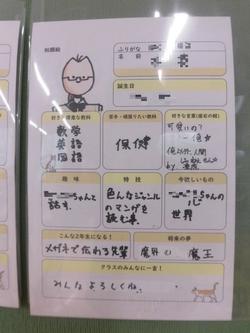 似顔絵
ふりがな
名前
誕生日
好き・得意な教科
数学
英語
国語
苦手・頑張りたい教科
保健
好きな言葉(座右の銘)
可愛いの?
趣味
ちゃんと
話す。
特技
色んなジャンル
のマンガを
読む事。
今欲しいもの
ちゃんの
心
世界
こんな2年生になる!
メガネで伝わる先輩
将来の夢
魔界の 魔王
クラスのみんなに一言!
みんなよろしくね。